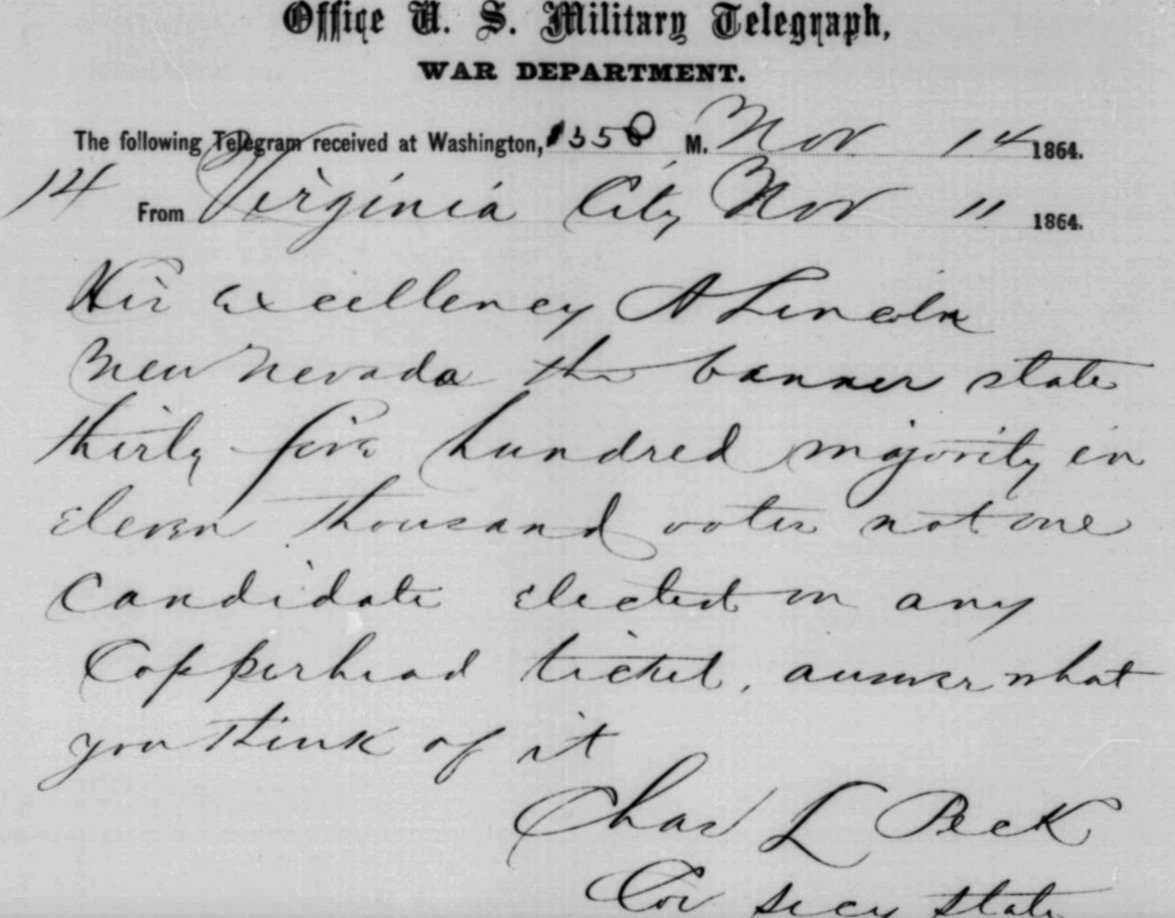 Office U. S. Military Telegraph,
WAR DEPARTMENT.
The following Telegram received at Washington, 1358 M. Nov 14 1864.
14 From Virginia City Nov 11 1864.
His Excellency A Lincoln
New Nevada the banner state
thirty five hundred majority in
eleven thousand votes not one
candidate elected on any
Copperhead ticket, answer what
you think of it
Chas L Peck
Cor secy state